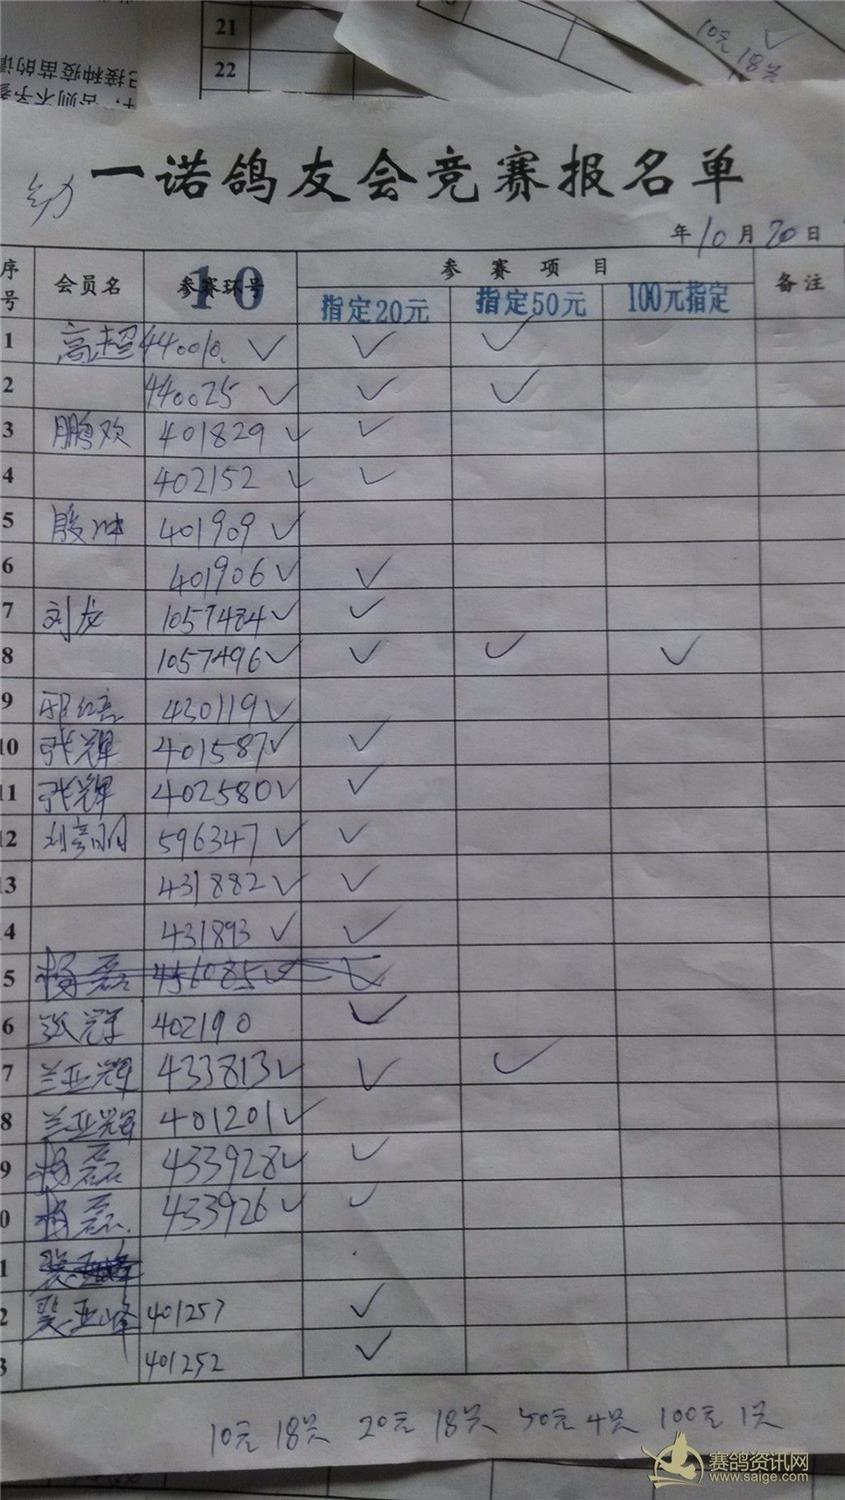 21
22
10元 18只
已接种疫苗的
一诺鸽友会竞赛报名单
幼
年 10 月 20 日
序号 会员名 参赛环号 10 参赛项目 备注
指定20元 指定50元 100元指定
1 高超 440010 ✓ ✓ ✓
2 440025 ✓ ✓ ✓
3 鹏欢 401829 ✓ ✓
4 402152 ✓ ✓
5 殷冲 401909 ✓
6 401906 ✓ ✓
7 刘龙 1057484 ✓ ✓
8 1057496 ✓ ✓ ✓ ✓
9 邢红亮 430119 ✓
10 张辉 401587 ✓ ✓
11 张辉 402580 ✓ ✓
12 刘彦明 596347 ✓ ✓
13 431882 ✓ ✓
4 431893 ✓ ✓
5 杨磊 456085 ✓ ✓
6 张辉 402190 ✓
7 兰亚辉 433813 ✓ ✓ ✓
8 兰亚辉 401201 ✓
9 杨磊 433928 ✓ ✓
0 杨磊 433926 ✓ ✓
1
2 裴亚峰 401257 ✓
3 401252 ✓
10元 18只 20元 18只 50元 4只 100元 1只
赛鸽资讯网
www.saige.com